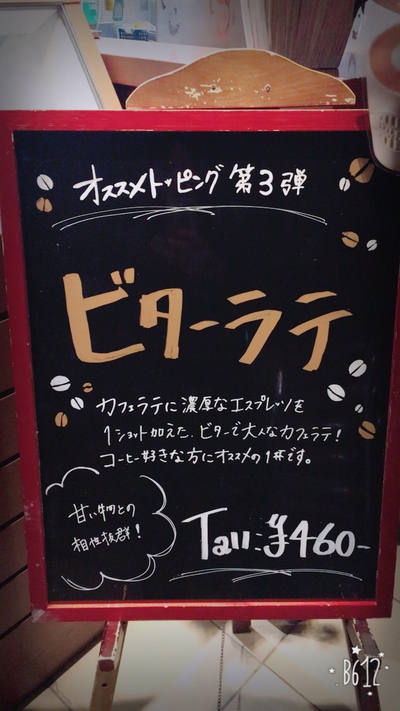 オススメトッピング 第3弾
ビターラテ
カフェラテに濃厚なエスプレッソを
1ショット加えた、ビターで大人なカフェラテ!
コーヒー好きな方にオススメの1杯です。
甘い物との
相性抜群!
Tall:¥460-
B612